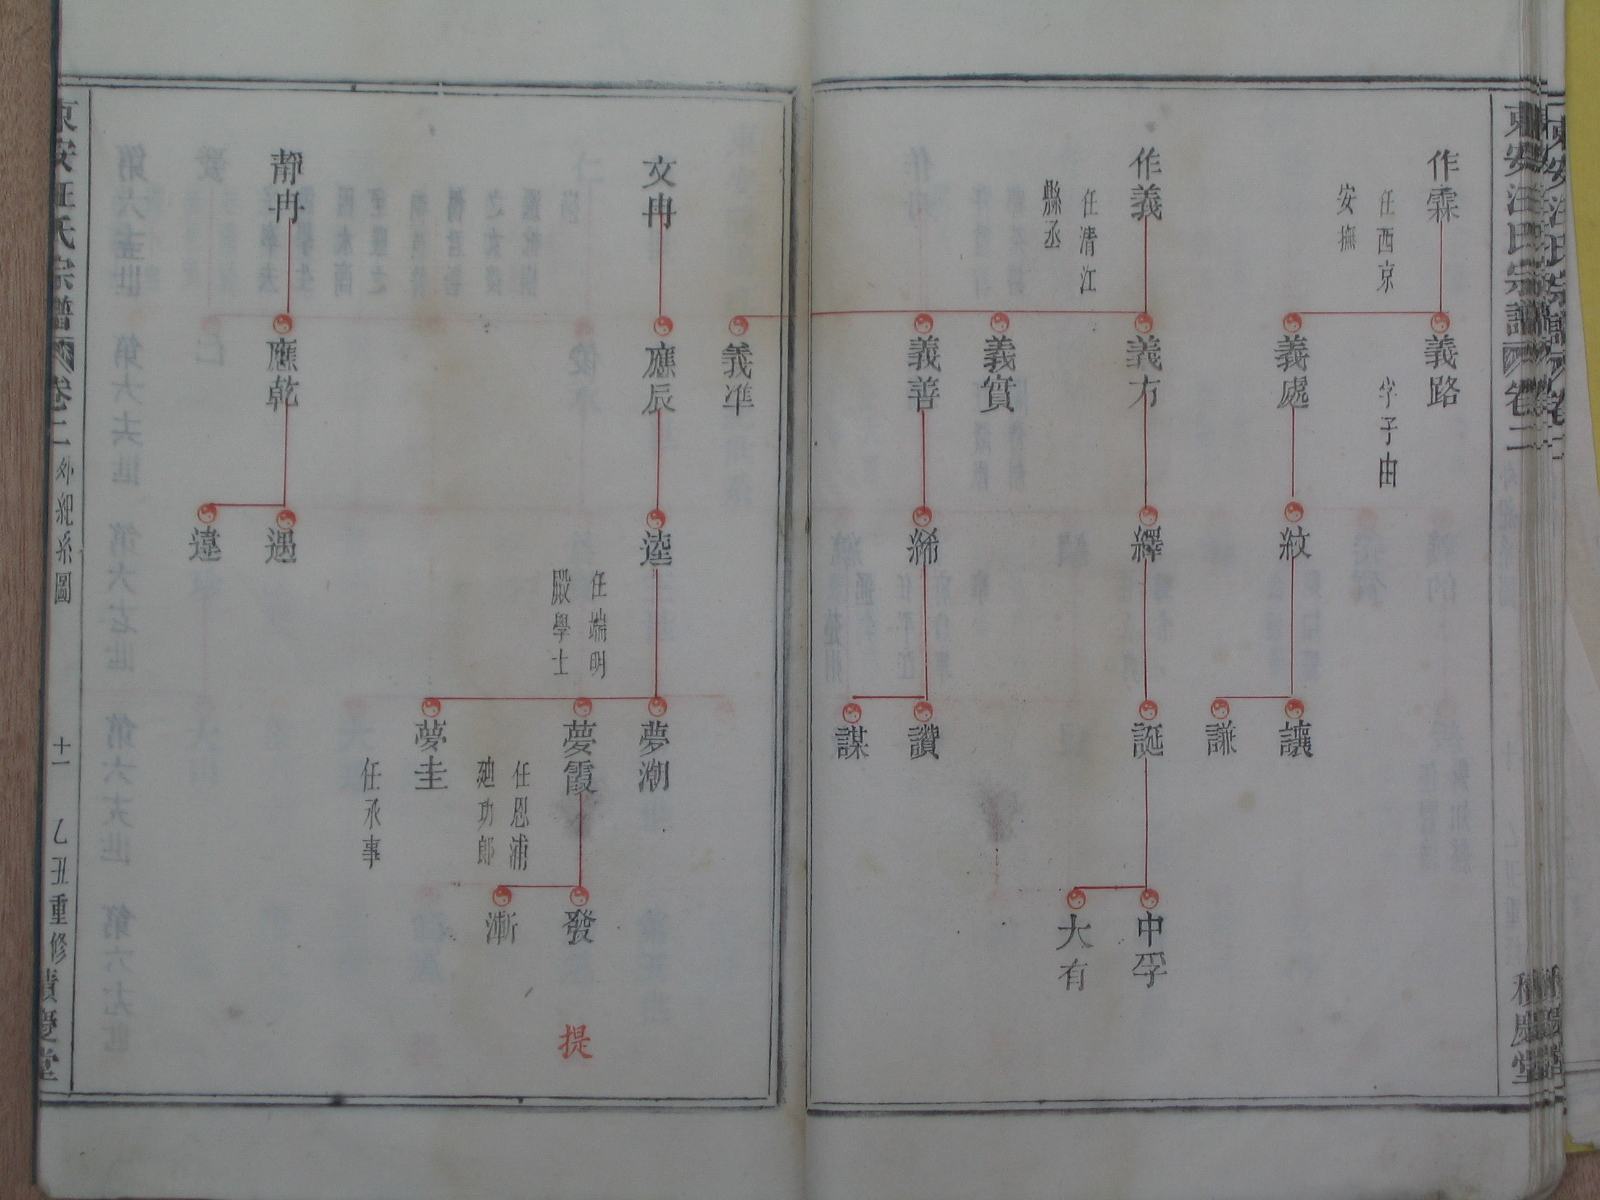 東安汪氏宗譜
卷二
作霖
任西京
安撫
義路
字子由
義處
紋
讓
謙
作義
任清江
縣丞
義方
繹
誕
中孚
大有
義實
義善
絺
讚
謀
義準
文冉
應辰
逵
任端明
殿學士
夢潮
夢霞
任恩浦
廸功郎
發
漸
夢圭
任承事
提
靜冉
應乾
遇
違
東安汪氏宗譜
卷二
外紀系圖
十一
乙丑重修
積慶堂